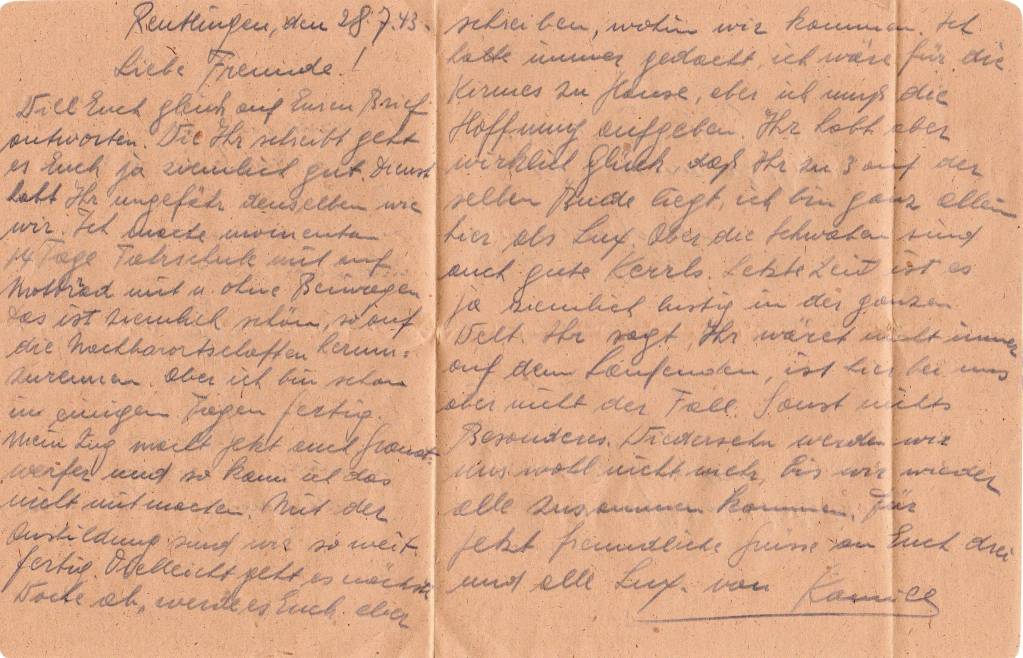 Reutlingen, den 28.7.43.
Liebe Freunde!
Will Euch gleich auf Euren Brief
antworten. Wie Ihr schreibt geht
es Euch ja ziemlich gut. Dienst
habt Ihr ungefähr denselben wie
wir. Ich mache momentan
14 Tage Fahrschule mit auf
Motorrad mit u. ohne Beiwagen
das ist ziemlich schön, so auf
die Nachbarortschaften herum-
zurennen. Aber ich bin schon
in einigen Tagen fertig.
Mein Zug macht jetzt auch Granat-
werfer und so kann ich das
nicht mitmachen. Mit der
Ausbildung sind wir so weit
fertig. Vielleicht geht es nächste
Woche ab, werde es Euch aber
schreiben, wohin wir kommen. Ich
hatte immer gedacht, ich wäre für die
Kirmes zu Hause, aber ich muß die
Hoffnung aufgeben. Ihr habt aber
wirklich Glück, daß Ihr zu 3 auf der
selben Bude liegt, ich bin ganz allein
hier als Lux. Aber die Schwaben sind
auch gute Kerrls. Letzte Zeit ist es
ja ziemlich lustig in der ganzen
Welt. Ihr sagt, Ihr wäret nicht immer
auf dem Laufenden, ist hier bei uns
aber nicht der Fall. Sonst nichts
Besonderes. Wiedersehn werden wir
uns wohl nicht mehr, bis wir wieder
alle zusammen kommen. Für
jetzt freundliche Grüsse an Euch drei
und alle Lux. von Kamill